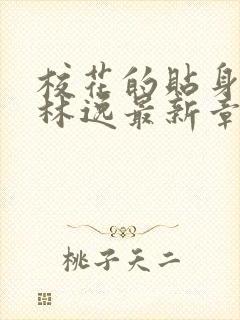 校花的贴身
林逸最新章
桃子天二